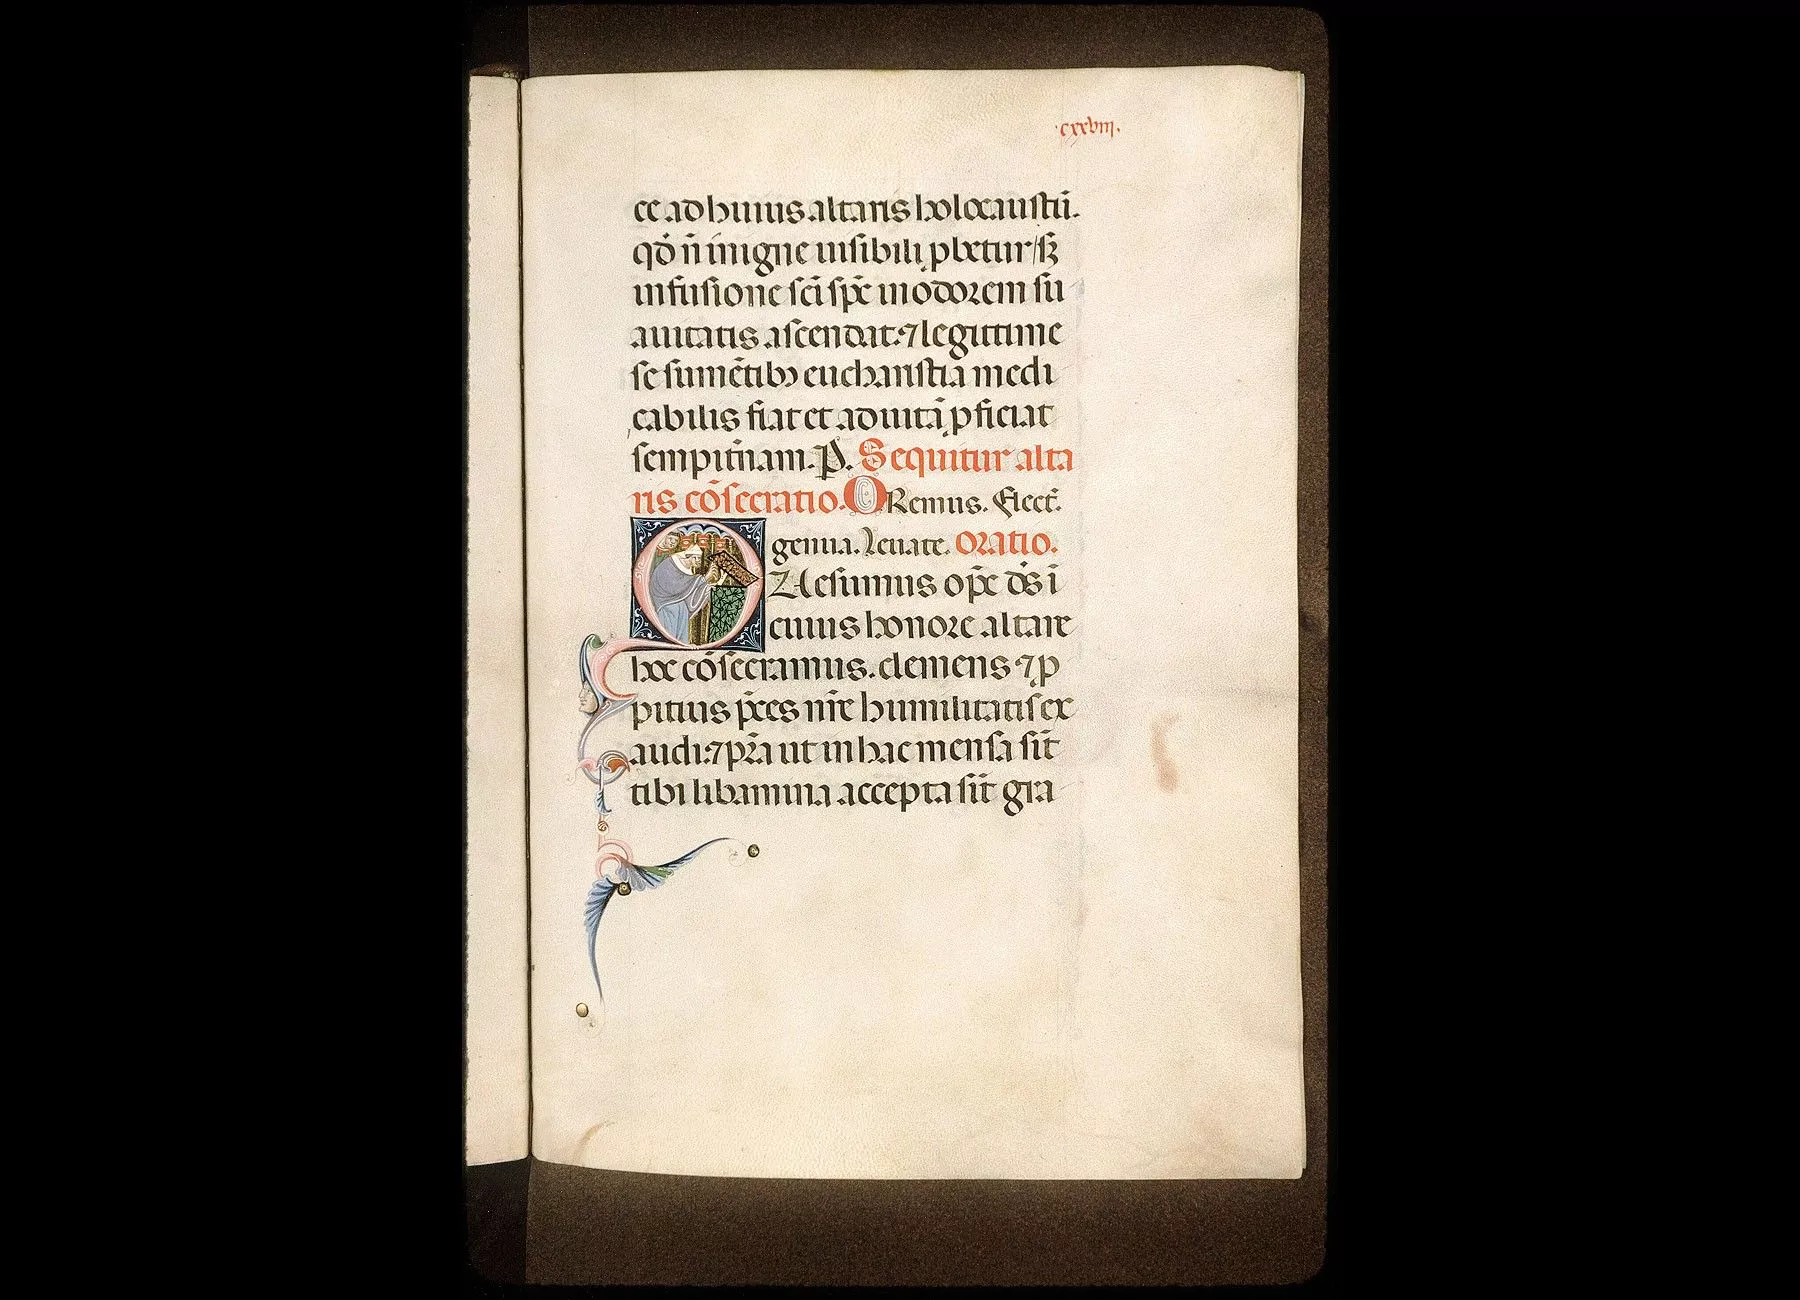 ·cxxviij·
ce ad huius altaris holocaustū.
qđ ñ inigne uisibili ꝓbetur / sꝫ
infusione sc̄i sp̄c inodorem su
auitatis ascendat. ⁊ legittime
se sumētibꝫ eucharistia medi
cabilis fiat et aduitā ꝓficiat
sempit̄nam. P. Sequitur alta
ris cōsecratio. ORemus. Flect̄.
genua. Leuate. ORatio.
Aesumus op̄c ds̄ i
cuius honore altare
hoc cōsecramus. clemens ⁊ ꝓ
pitius p̄ces nr̄e humilitatis ex
audi: ⁊ pr̄a ut in hac mensa sīt
tibi libamina accepta sīt gra